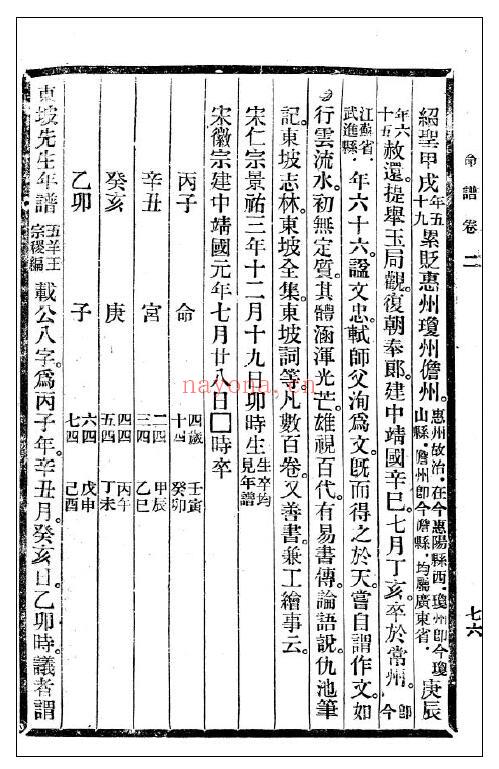 命譜卷二
七六
紹聖甲戌年五十九累貶惠州瓊州儋州。惠州故治。在今惠陽縣西。瓊州卽今瓊山縣。儋州卽今儋縣。均屬廣東省。庚辰
年六十五赦還。提舉玉局觀。復朝奉郞。建中靖國辛巳七月丁亥卒於常州。卽今
江蘇省武進縣。年六十六。諡文忠。軾師父洵爲文。旣而得之於天。嘗自謂作文如
行雲流水。初無定質。其體涵渾光芒。雄視百代。有易書傳論語說仇池筆
記。東坡志林。東坡全集。東坡詞等。凡數百卷。又善書。兼工繪事云。
宋仁宗景祐三年十二月十九日卯時生生卒均見年譜
宋徽宗建中靖國元年七月廿八日□時卒
丙子 命 四歲 壬寅 十四 癸卯
辛丑 宮 二四 甲辰 三四 乙巳
癸亥 庚 四四 丙午 五四 丁未
乙卯 子 六四 戊申 七四 己酉
東坡先生年譜五羊王宗稷編載公八字爲丙子年。辛丑月。癸亥日。乙卯時。議者謂
nayona.cn